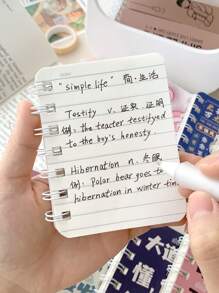 "simple life" 简·生活
Testity v. 证实，证明
例: the teacter testifyed
to the boy's honesty.
Hibernation n. 冬眠
例: Polar bear goes to
hibernation in winter time
大道
懂